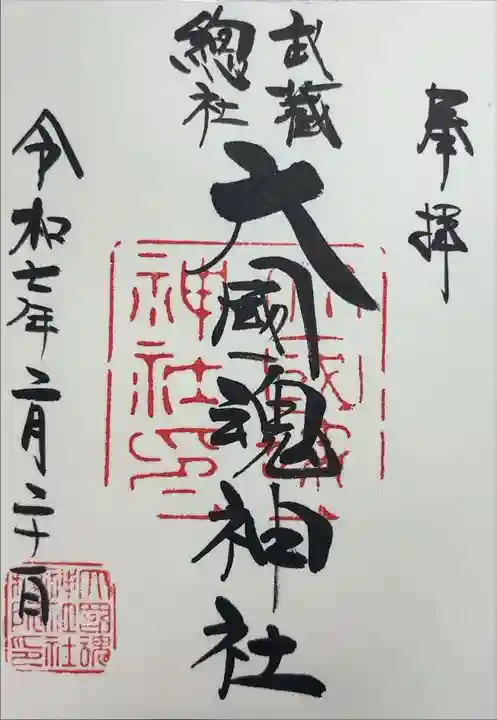 奉拝
武蔵
總社
大國魂神社
令和七年二月二十一日
大國魂
神社社